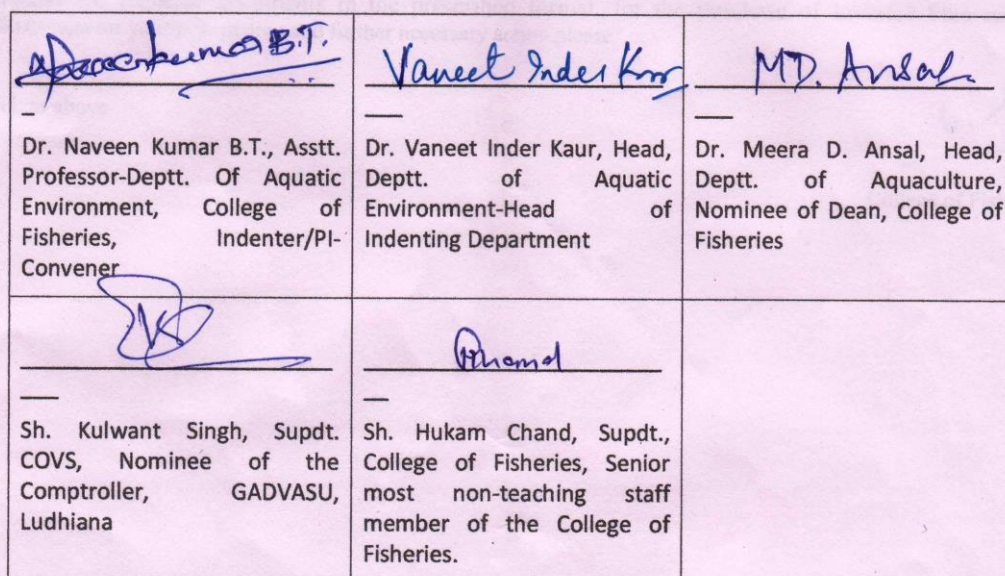 Naveenkumar B.T.
Vaneet Inder Kaur
M.D. Ansal
Dr. Naveen Kumar B.T., Asstt.
Professor-Deptt. Of Aquatic
Environment, College of
Fisheries, Indenter/PI-
Convener
Dr. Vaneet Inder Kaur, Head,
Deptt. of Aquatic
Environment-Head of
Indenting Department
Dr. Meera D. Ansal, Head,
Deptt. of Aquaculture,
Nominee of Dean, College of
Fisheries
Sh. Kulwant Singh, Supdt.
COVS, Nominee of the
Comptroller, GADVASU,
Ludhiana
Sh. Hukam Chand, Supdt.,
College of Fisheries, Senior
most non-teaching staff
member of the College of
Fisheries.